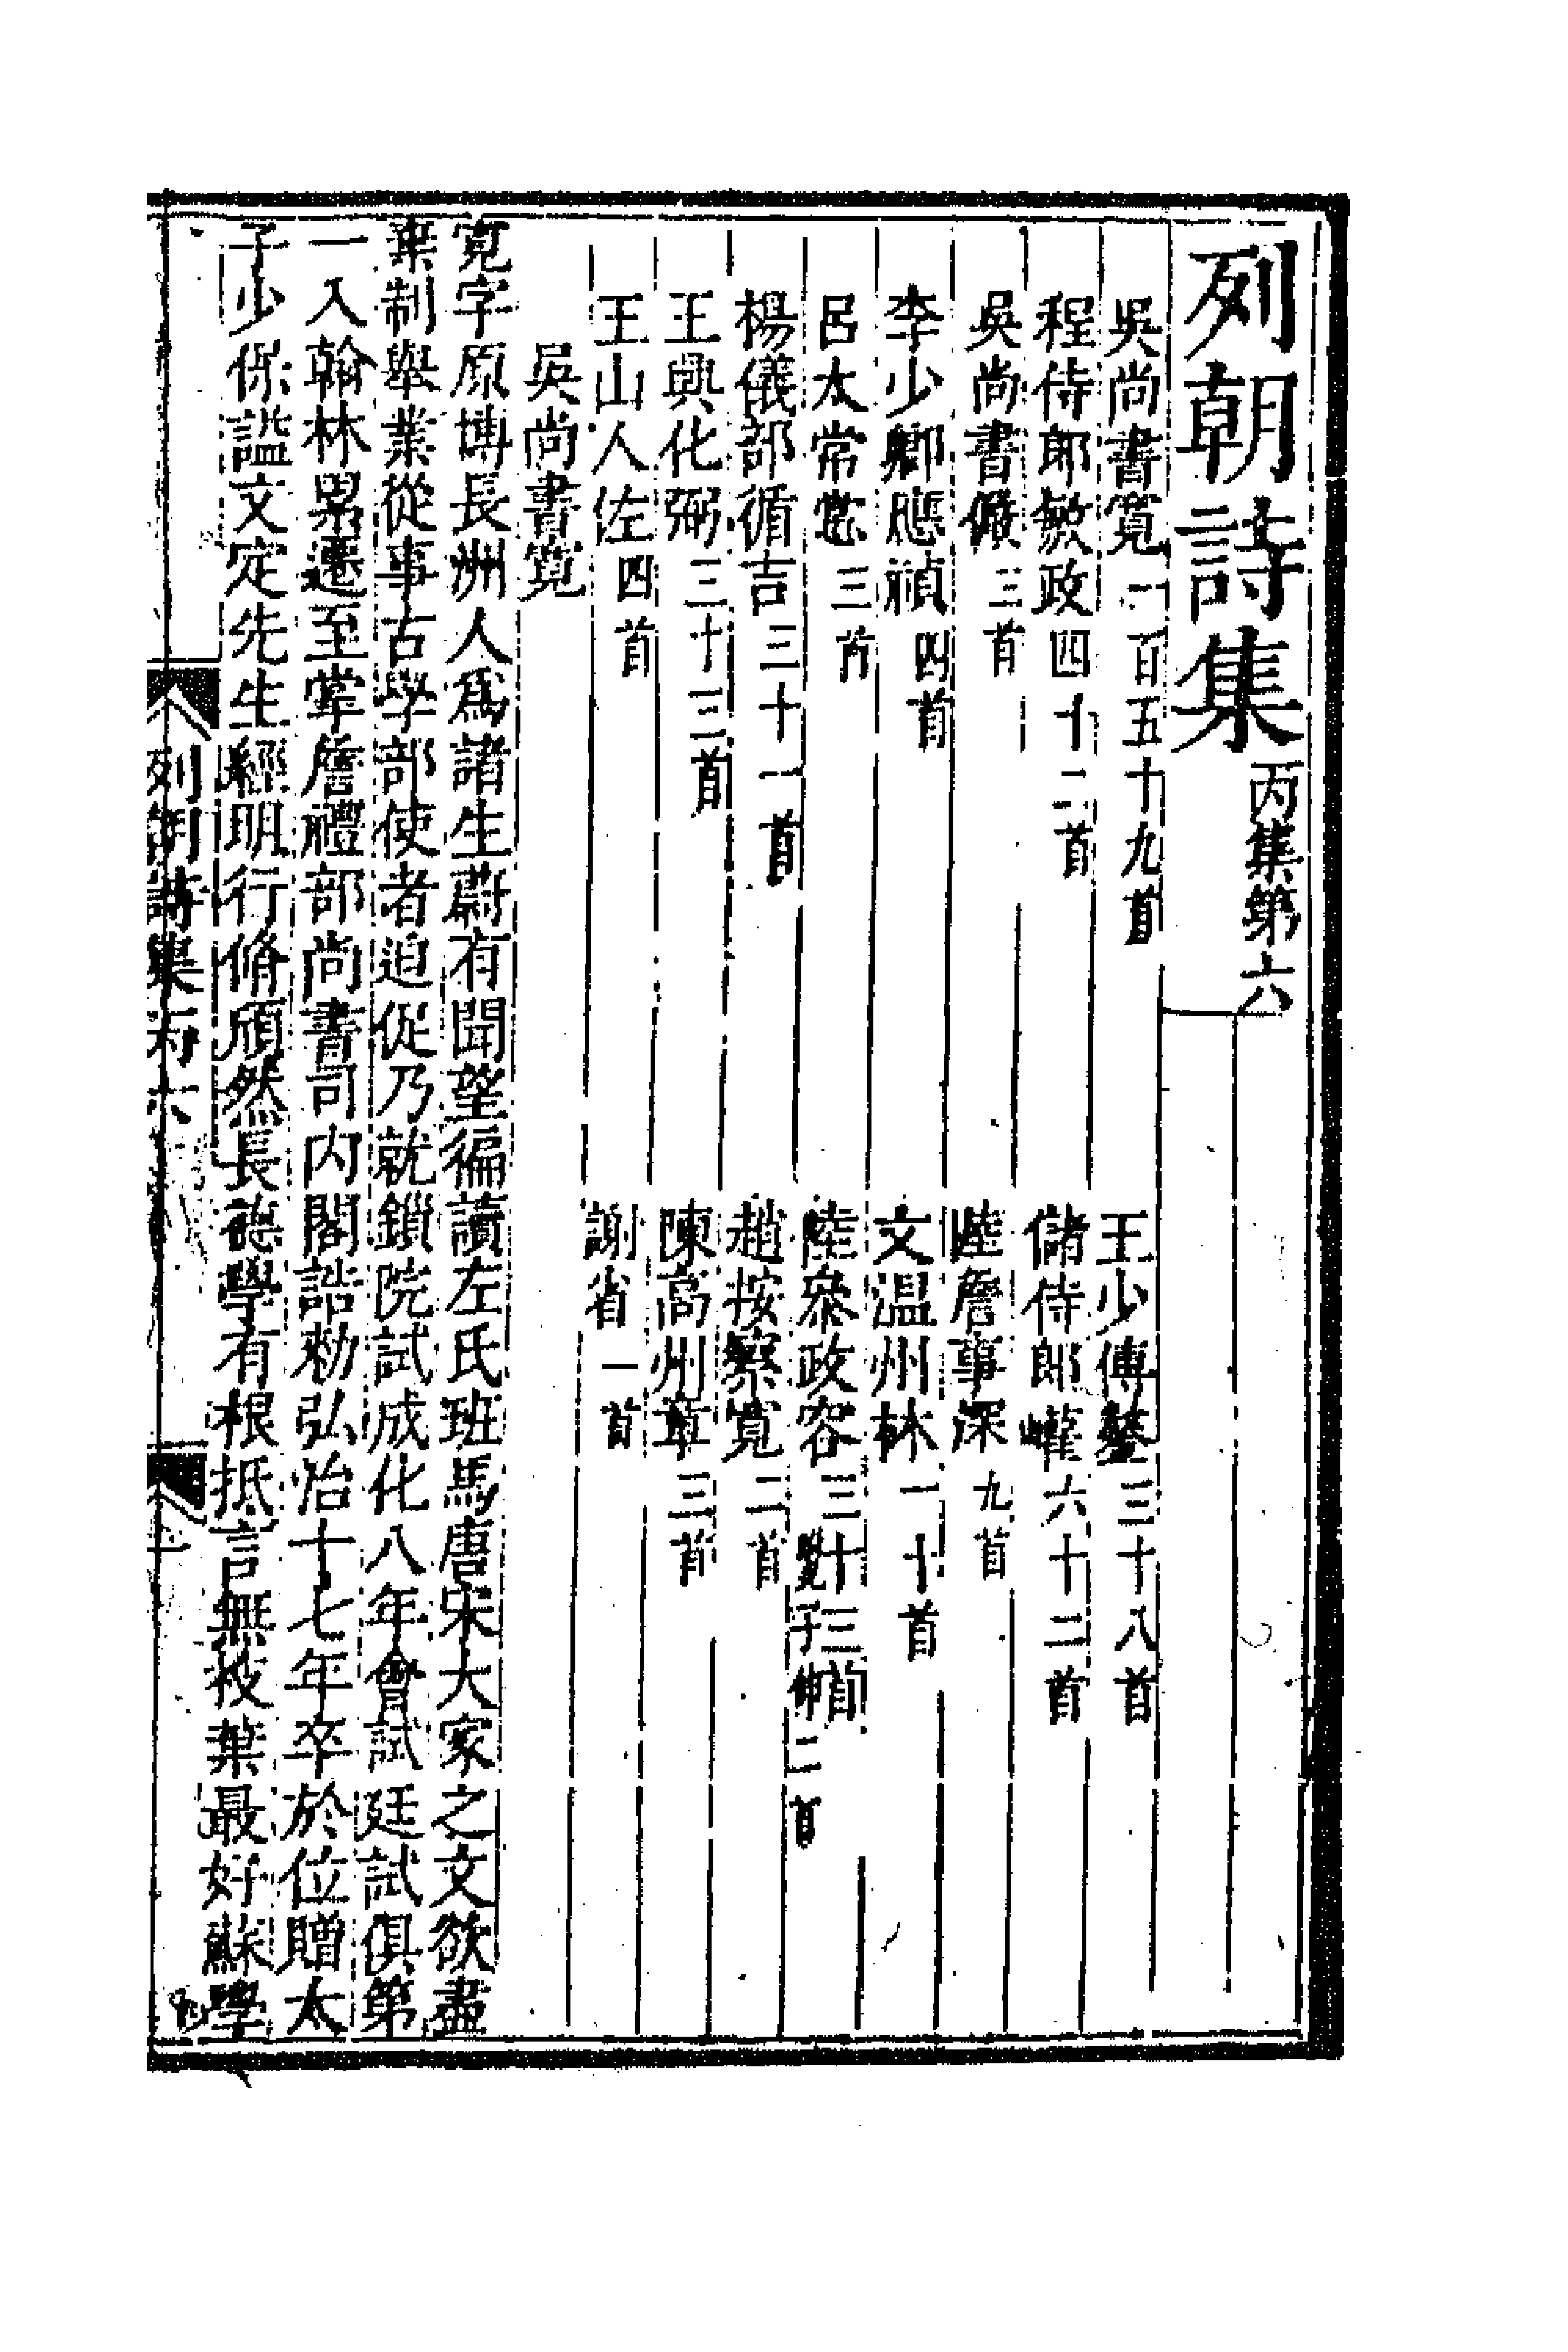 列朝詩集丙集第六
吳尚書寬一百五十九首　王少傅鏊三十八首
程侍郎敏政四十二首　儲侍郎巏六十二首
吳尚書儼三首　陸詹事深九首
李少卿應禎四首　文温州林一十首
呂太常㦂三首　陸叅政容三十三首
楊儀部循吉三十一首　趙按察寬二首
王興化弼三十三首　陳高州章三首
王山人佐四首　謝省一首
吳尚書寬
寬字原博長洲人爲諸生蔚有聞望徧讀左氏班馬唐宋大家之文欲盡
棄制舉業從事古學部使者迫促乃就鎖院試成化八年會試廷試俱第
一入翰林累遷至掌詹禮部尚書司内閣誥勑弘治十七年卒於位贈太
子少保謚文定先生經明行脩頎然長德學有根抵言無枝葉最好蘇學
列朝詩集丙六